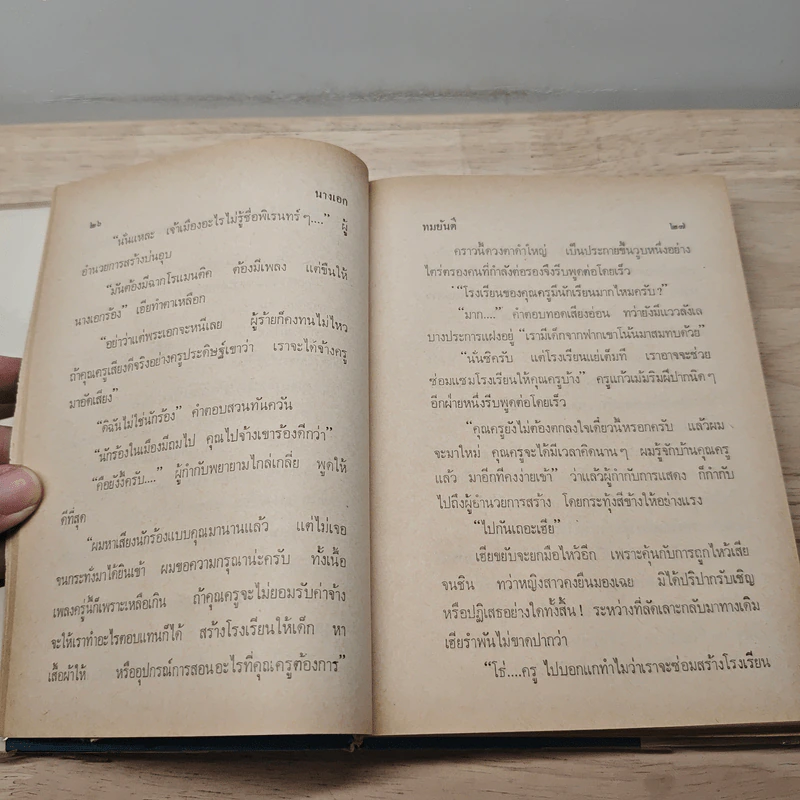 ๒๖
นางเอก
“นั่นแหละ เจ้าเมืองอะไรไม่รู้ชื่อพิเรนทร์ ๆ....” ผู้
อำนวยการสร้างบ่นอุบ
“มันต้องมีฉากโรแมนติค ต้องมีเพลง แต่ขืนให้
นางเอกร้อง” เฮียทำตาเหลือก
“อย่าว่าแต่พระเอกจะหนีเลย ผู้ร้ายก็คงทนไม่ไหว
ถ้าคุณครูเสียงดีจริงอย่างครูประดิษฐ์เขาว่า เราจะได้จ้างครู
มาอัดเสียง”
“ดิฉันไม่ใช่นักร้อง” คำตอบสวนทันควัน
“นักร้องในเมืองมีถมไป คุณไปจ้างเขาร้องดีกว่า”
“คือยังงี้ครับ....” ผู้กำกับพยายามไกล่เกลี่ย พูดให้
ดีที่สุด
“ผมหาเสียงนักร้องแบบคุณมานานแล้ว แต่ไม่เจอ
จนกระทั่งมาได้ยินเข้า ผมขอความกรุณาน่ะครับ ทั้งเนื้อ
เพลงครูนี่ก็เพราะเหลือเกิน ถ้าคุณครูจะไม่ยอมรับค่าจ้าง
จะให้เราทำอะไรตอบแทนก็ได้ สร้างโรงเรียนให้เด็ก หา
เสื้อผ้าให้ หรืออุปกรณ์การสอนอะไรที่คุณครูต้องการ”
ทมยันตี
๒๗
คราวนี้ดวงตาดำใหญ่ เป็นประกายขึ้นวูบหนึ่งอย่าง
ไตร่ตรองคนที่กำลังต่อรองจึงรีบพูดต่อโดยเร็ว
“โรงเรียนของคุณครูมีนักเรียนมากไหมครับ?”
“มาก....” คำตอบทอดเสียงอ่อน ทว่ายังมีแววลังเล
บางประการแฝงอยู่ “เรามีเด็กจากฟากเขาโน้นมาสมทบด้วย”
“นั่นซิครับ แต่โรงเรียนแย่เต็มที เราอาจจะช่วย
ซ่อมแซมโรงเรียนให้คุณครูบ้าง” ครูแก้วเม้มริมฝีปากนิด ๆ
อีกฝ่ายหนึ่งรีบพูดต่อโดยเร็ว
“คุณครูยังไม่ต้องตกลงใจเดี๋ยวนี้หรอกครับ แล้วผม
จะมาใหม่ คุณครูจะได้มีเวลาคิดนาน ๆ ผมรู้จักบ้านคุณครู
แล้ว มาอีกทีคงง่ายเข้า” ว่าแล้วผู้กำกับการแสดง ก็กำกับ
ไปถึงผู้อำนวยการสร้าง โดยกระทุ้งสีข้างให้อย่างแรง
“ไปกันเถอะเฮีย”
เฮียขยับจะยกมือไหว้อีก เพราะคุ้นกับการถูกไหว้เสีย
จนชิน ทว่าหญิงสาวคงยืนมองเฉย มิได้ปริปากรับเชิญ
หรือปฏิเสธอย่างใดทั้งสิ้น! ระหว่างที่ลัดเลาะกลับมาทางเดิม
เฮียรำพันไม่ขาดปากว่า
“โธ่....ครู ไปบอกแกทำไมว่าเราจะซ่อมสร้างโรงเรียน